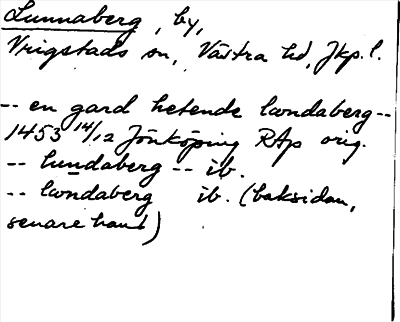 Lunnaberg, by,
Vrigstads sn, Västra hd, Jkp. l.
-- en gard hetende lændaberg --
1453 14/12 Jönköping RAp orig.
-- lundaberg -- ib.
-- lændaberg ib. (baksidan,
senare hand)